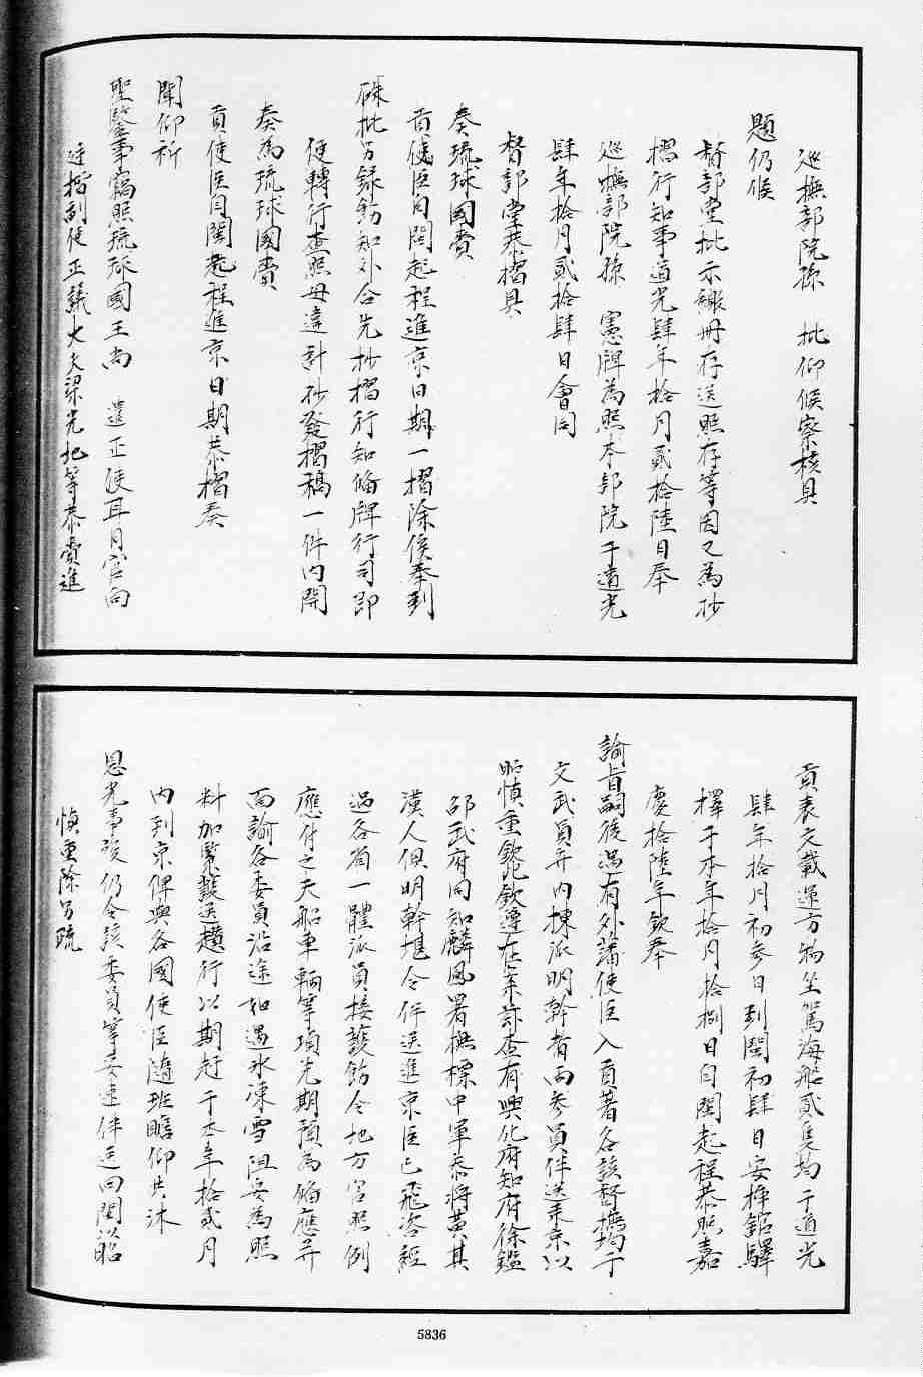 巡撫部院孫　批仰候察核具
題仍候
督部堂批示繳冊存送照存等因又為抄
摺行知事道光肆年拾月貳拾陸日奉
巡撫部院孫　憲牌為照本部院于道光
肆年拾月貳拾肆日會同
督部堂恭摺具
奏琉球國賫
貢使臣自閩起程進京日期一摺除俟奉到
硃批另錄飭知外合先抄摺行知備牌行司即
便轉行查照毋違計抄發摺稿一件內開
奏為琉球國賫
貢使臣自閩起程進京日期恭摺奏
聞仰祈
聖鑒事竊照琉球國王尚　遣正使耳目官向
廷楷副使正議大夫梁光地等恭賫進
貢表文載運方物坐駕海船貳隻均于道光
肆年拾月初參日到閩初肆日安揷館驛
擇于本年拾月拾捌日自閩起程恭照嘉
慶拾陸年欽奉
諭旨嗣後遇有外藩使臣入貢著各該督撫均于
文武員弁內棟派明幹者兩參員伴送來京以
昭慎重欽此欽遵在案茲查有興化府知府徐鑑
邵武府同知麟鳳署撫標中軍參將黃其
漢人俱明幹堪令伴送進京臣已飛咨經
過各省一體派員接護飭令地方官照例
應付之夫船車輛等項先期預為備應并
面諭各委員沿途如遇氷凍雪阻妥為照
料加緊護送趲行以期赶于本年拾貳月
內到京俾與各國使臣隨班瞻仰共沐
恩光事竣仍令該委員等妥速伴送回閩以昭
慎重除另疏
5836